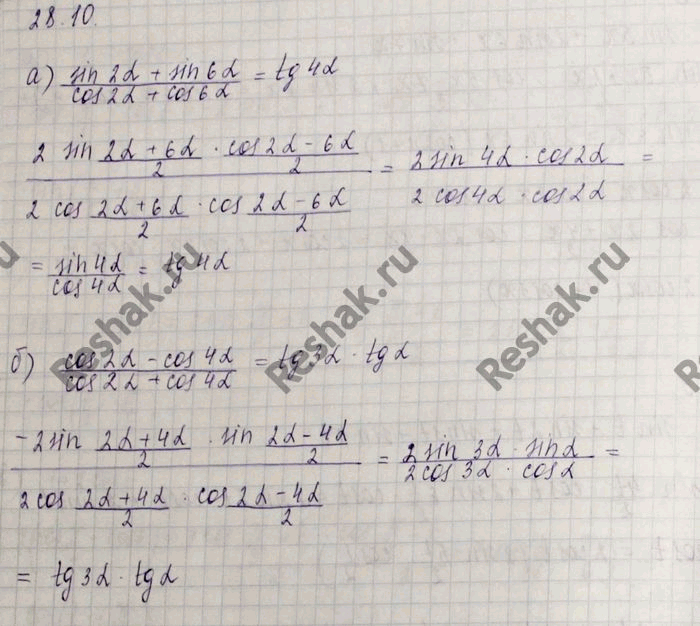 28.10.
а) (sin 2α + sin 6α)/(cos 2α + cos 6α) = tg 4α
(2 sin (2α + 6α)/2 · cos (2α - 6α)/2)/(2 cos (2α + 6α)/2 · cos (2α - 6α)/2) = (2 sin 4α · cos 2α)/(2 cos 4α · cos 2α) =
= sin 4α/cos 4α = tg 4α
б) (cos 2α - cos 4α)/(cos 2α + cos 4α) = tg 3α · tg α
(-2 sin (2α + 4α)/2 · sin (2α - 4α)/2)/(2 cos (2α + 4α)/2 · cos (2α - 4α)/2) = (2 sin 3α · sin α)/(2 cos 3α · cos α) =
= tg 3α · tg α
Reshak.ru
Reshak.ru